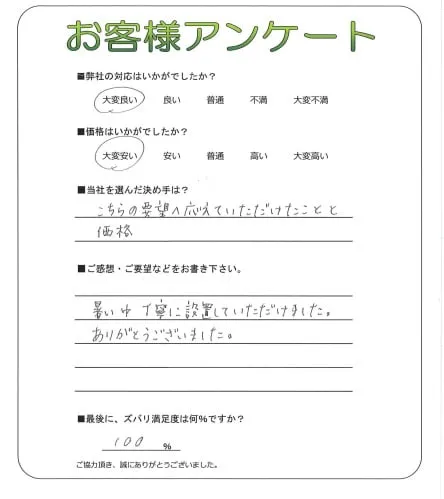 お客様アンケート
■弊社の対応はいかがでしたか？
大変良い 良い 普通 不満 大変不満
■価格はいかがでしたか？
大変安い 安い 普通 高い 大変高い
■当社を選んだ決め手は？
こちらの要望へ応えていただけたことと
価格
■ご感想・ご要望などをお書き下さい。
暑い中 丁寧に設置していただけました。
ありがとうございました。
■最後に、ズバリ満足度は何％ですか？
100 ％
ご協力頂き、誠にありがとうございました。